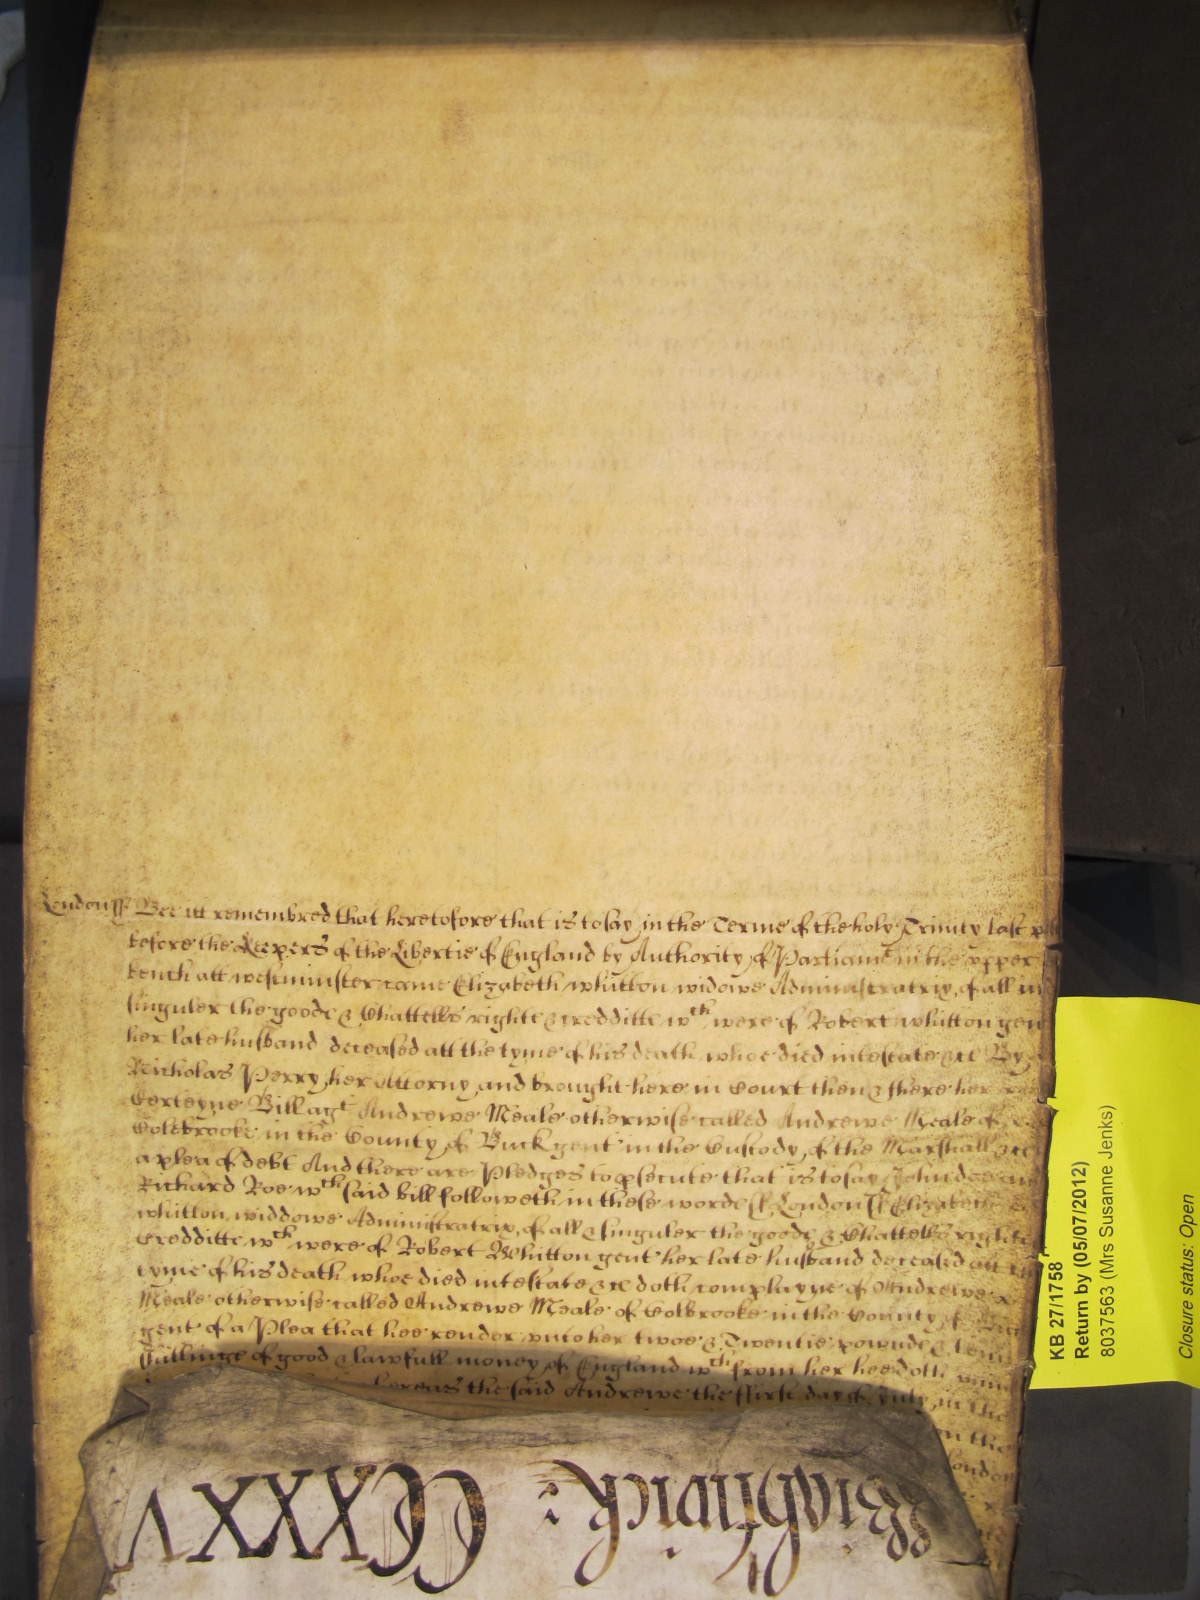 London ss Bee itt remembred that heretofore that is to say in the Terme of the holy Trinity last
before the Keepers of the Libertie of England by Authority of Parliamt in the vpper
bench att westminster came Elizabeth whitton widowe Administratrix of all
singuler the goode & Chattells righte & credditte wch were of Robert whitton gen
her late husband deceased att the tyme of his death whoe died intestate &c By
Nicholas Perry her Attorny and brought here in Court then & there her
Certeyne Bill agt Andrewe Meale otherwise called Andrewe Meale of
Colebrooke in the County of Buck gent in the Custody of the Marshall &c
a plea of debt And there are Pledges to prosecute that is to say John doe
Richard Roe wch said bill followeth in these worde ss London ss Elizabeth
whitton widdowe Administratrix of all & singuler the goode & Chattells righte
Credditte wch were of Robert Whitton gent her late husband deceased att
tyme of his death whoe died intestate &c doth complayne of Andrewe
Meale otherwise called Andrewe Meale of Colbrooke in the County of
gent of a Plea that hee render vnto her twoe & Twentie pownde & tenn
shillinge of good & lawfull money of England wch from her hee doth
the said Andrewe the ffirst day of July in the
in the
London
Wightwick: CCXXXV
KB 27/1758
Return by (05/07/2012)
8037563 (Mrs Susanne Jenks)
Closure status: Open